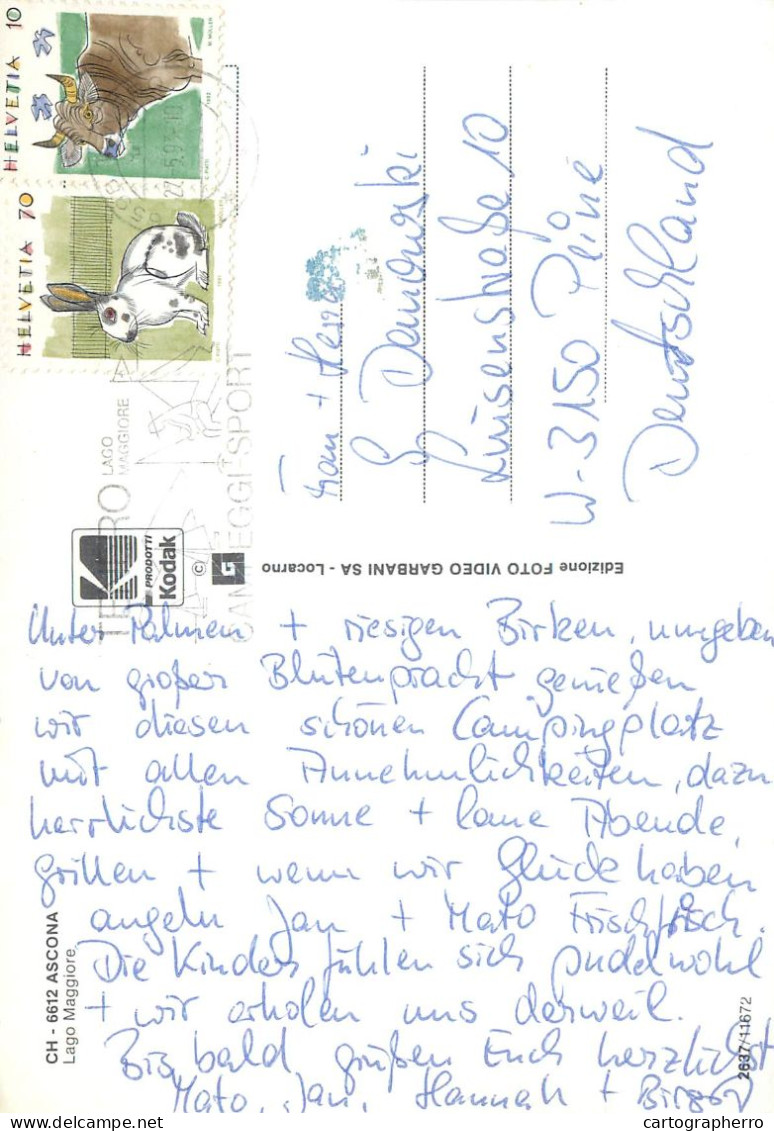 HELVETIA 10
HELVETIA 70
LAGO
MAGGIORE
PRODOTTI
Kodak
©
Edizione FOTO VIDEO GARBANI SA - Locarno
Frau + Herrn
Luisenstraße 10
W-3150 Peine
Deutschland
Unter Palmen + riesigen Birken, umgeben
von großer Blütenpracht genießen
wir diesen schönen Campingplatz
mit allen Annehmlichkeiten, dazu
herrlichste Sonne + laue Abende,
Grillen + wenn wir Glück haben
angeln Jan + Mato Frischfisch.
Die Kinder fühlen sich pudelwohl
+ wir erholen uns derweil.
Bis bald, grüßen Euch herzlichst
Mato, Jan, Hannah +
CH - 6612 ASCONA
Lago Maggiore
2637/11672
cartographerro
cartographerro.com